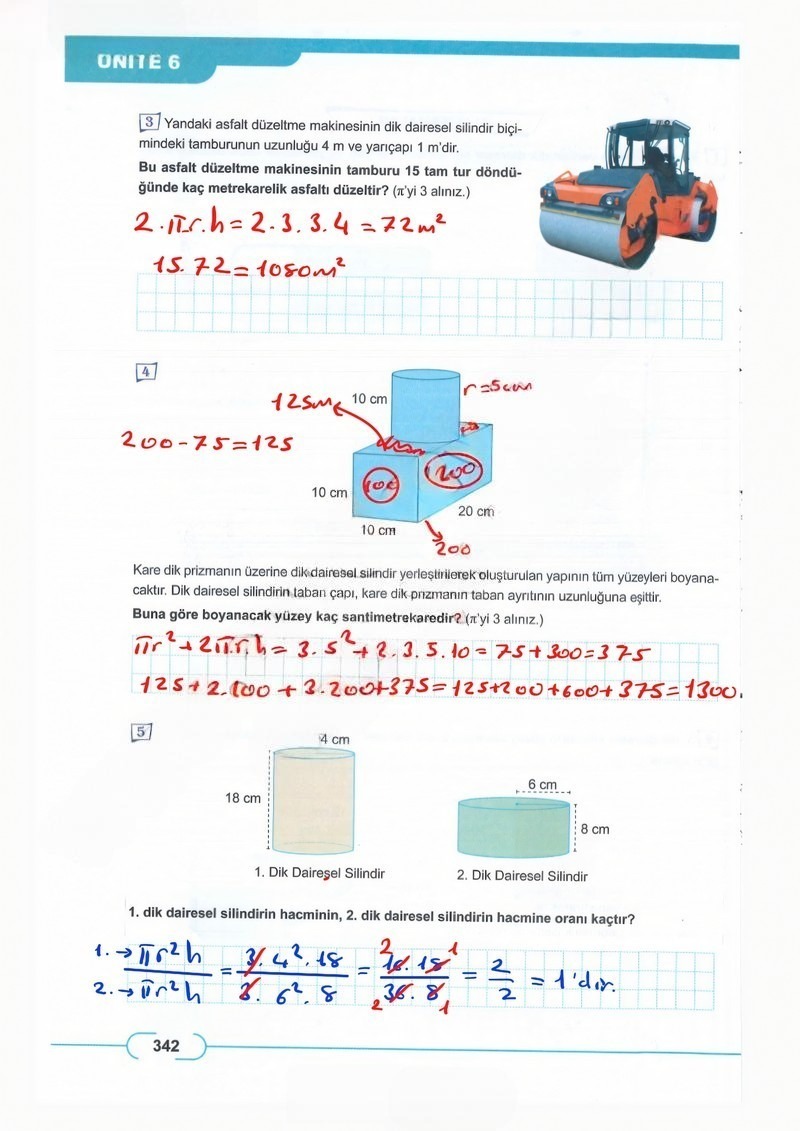 ÜNİTE 6
3 Yandaki asfalt düzeltme makinesinin dik dairesel silindir biçi-
mindeki tamburunun uzunluğu 4 m ve yarıçapı 1 m'dir.
Bu asfalt düzeltme makinesinin tamburu 15 tam tur döndü-
ğünde kaç metrekarelik asfaltı düzeltir? (π'yi 3 alınız.)
2.πr.h = 2.3.3.4 = 72m²
15.72 = 1080m²
4
125m
10 cm
r=5cm
200-75=125
10 cm
100
200
20 cm
10 cm
200
Kare dik prizmanın üzerine dik dairesel silindir yerleştirilerek oluşturulan yapının tüm yüzeyleri boyana-
caktır. Dik dairesel silindirin taban çapı, kare dik prizmanın taban ayrıtının uzunluğuna eşittir.
Buna göre boyanacak yüzey kaç santimetrekaredir? (π'yi 3 alınız.)
πr² + 2πr.h = 3.5² + 2.3.5.10 = 75+300=375
125+2.100 + 3.200+375=125+200+600+375=1300.
5
4 cm
18 cm
6 cm
8 cm
1. Dik Dairesel Silindir
2. Dik Dairesel Silindir
1. dik dairesel silindirin hacminin, 2. dik dairesel silindirin hacmine oranı kaçtır?
1.→ πr²h / 2.→ πr²h = 3.4².18 / 3.6².8 = 16.18 / 36.8 = 2/2 = 1'dir.
342